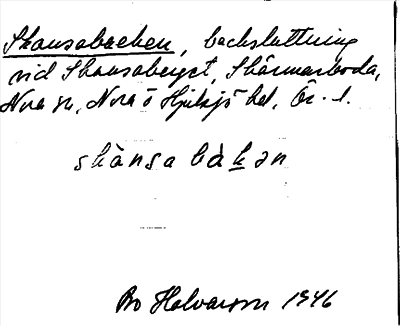 Skansabacken, backsluttning
vid Skansaberget, Skärmarboda,
Nora sn, Nora o Hjulsjö hd, Ör. l.
skànsa bàkən
Bo Halvarson 1946